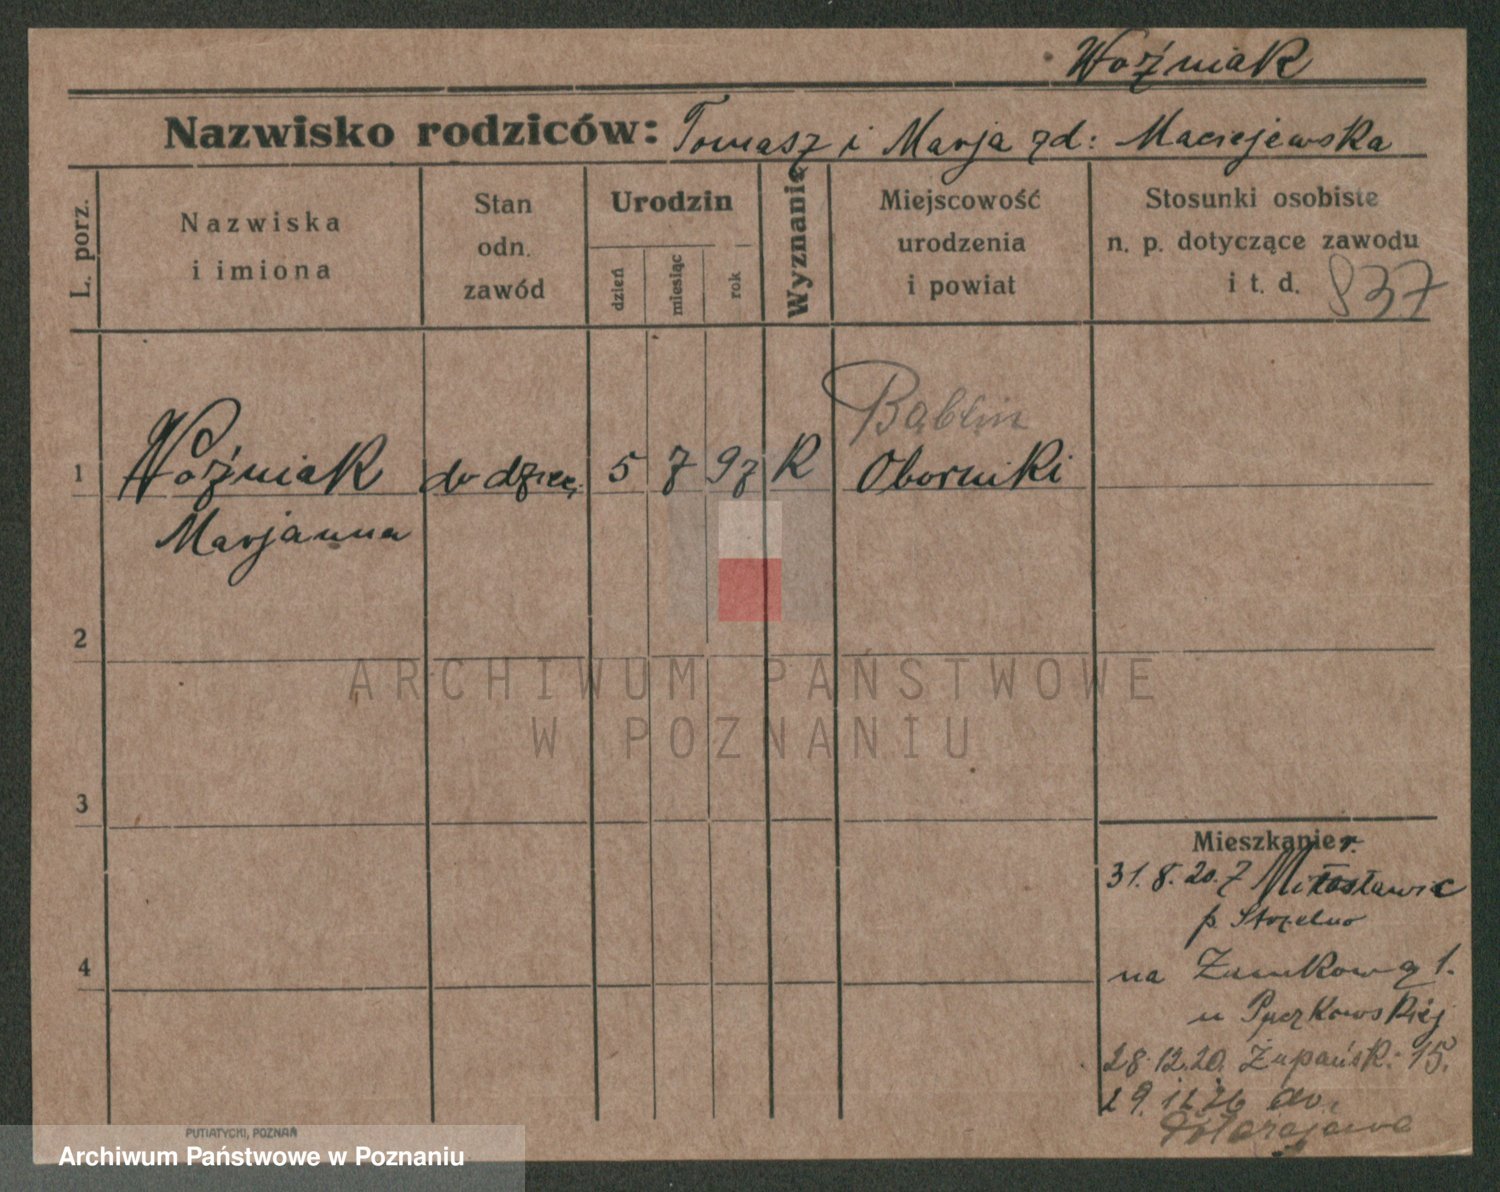 Woźniak
Nazwisko rodziców: Tomasz i Marja zd: Maciejewska
L. porz.
Nazwiska
i imiona
Stan
odn.
zawód
Urodzin
dzień
miesiąc
rok
Wyznanie
Miejscowość
urodzenia
i powiat
Stosunki osobiste
n. p. dotyczące zawodu
i t. d.
837
Bąblin
1 Woźniak do dzieci 5 7 97 K Oborniki
Marjanna
2
ARCHIWUM PAŃSTWOWE
W POZNANIU
3
Mieszkanie
31.8.20. z Miłosławic
p. Strzelno
na Zamkową 1.
u Pączkowskiej
28.12.20. Żupańsk. 15.
29. do
4
PUTIATYCKI, POZNAŃ
Archiwum Państwowe w Poznaniu